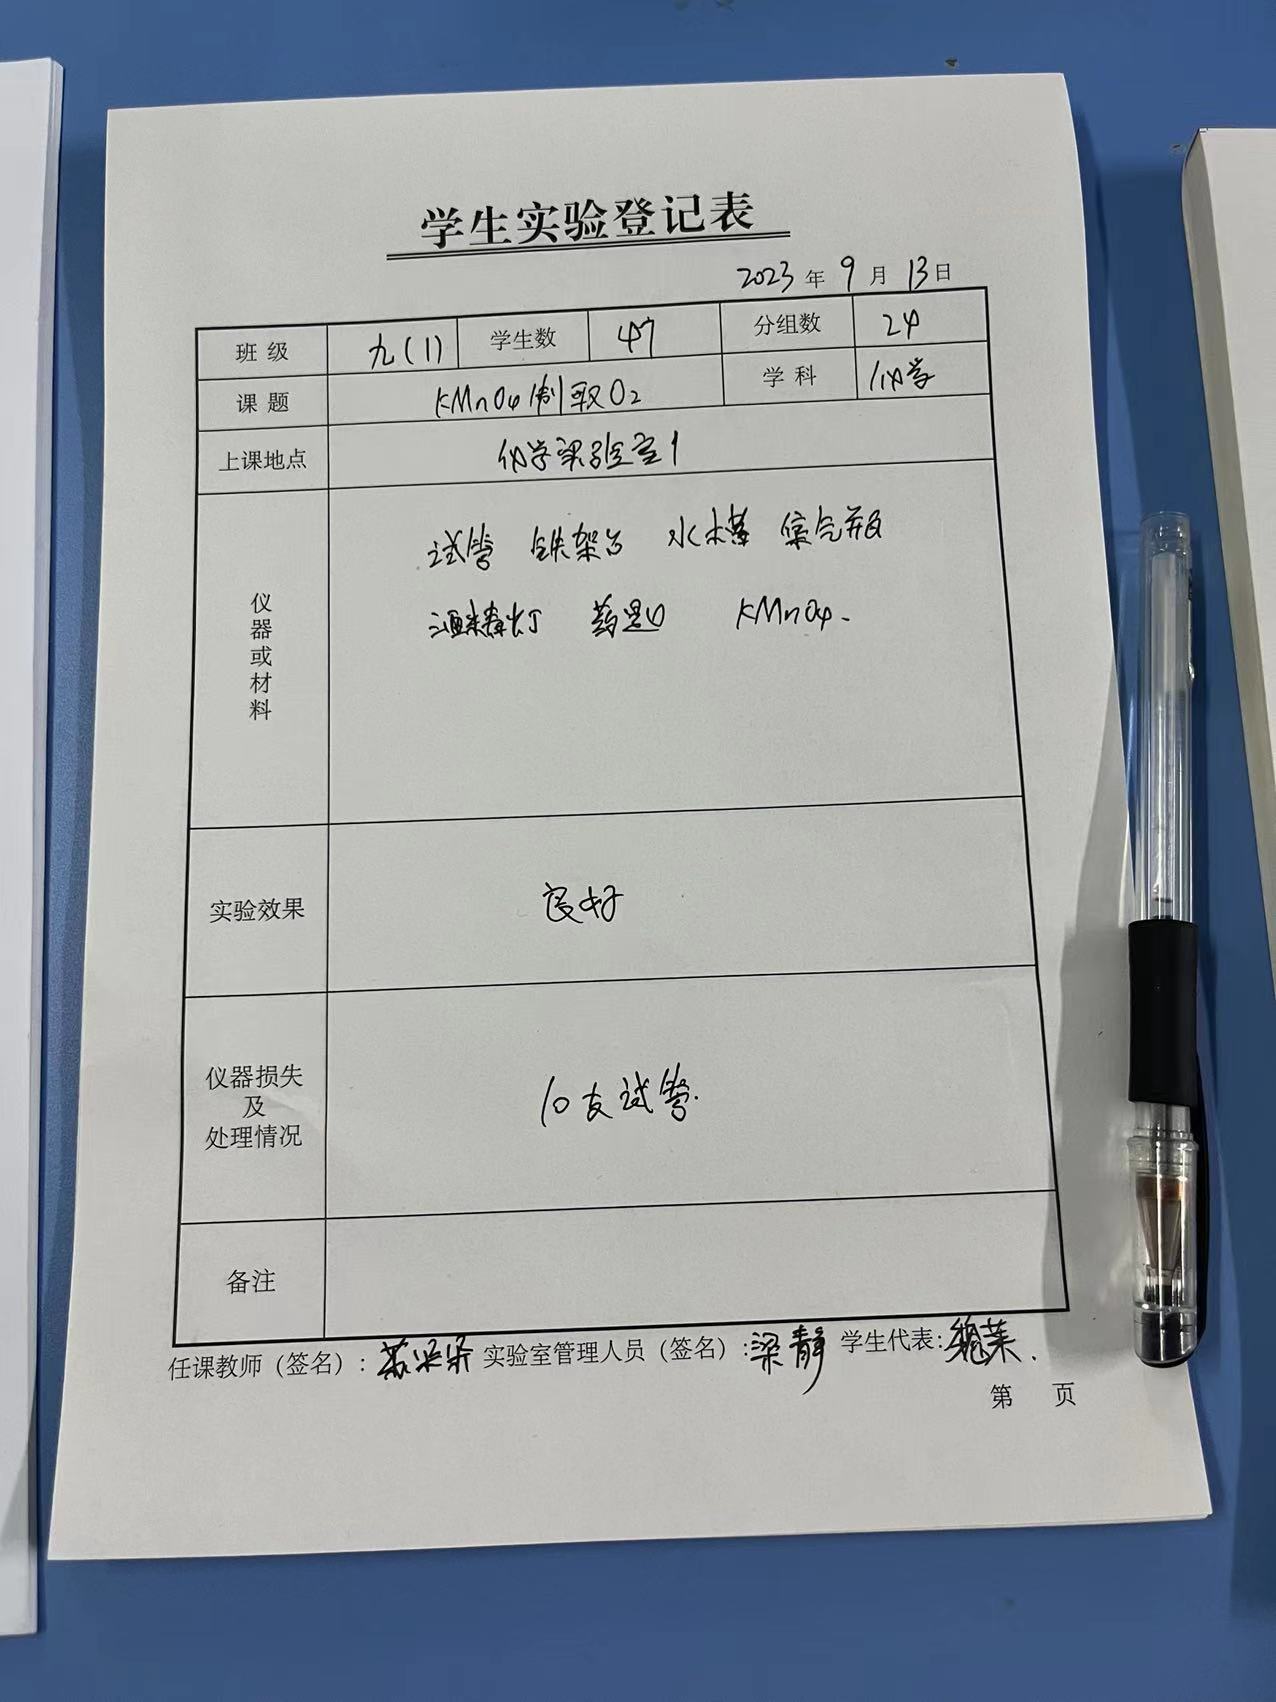 学生实验登记表
2023年9月13日
班级 九(1) 学生数 47 分组数 24
课题 KMnO4制取O2 学科 化学
上课地点 化学实验室1
仪器或材料
试管 铁架台 水槽 集气瓶
酒精灯 药匙 KMnO4.
实验效果 良好
仪器损失
及
处理情况
10支试管.
备注
任课教师（签名）: 苏 实验室管理人员（签名）: 梁静 学生代表: 魏莱.
第 页